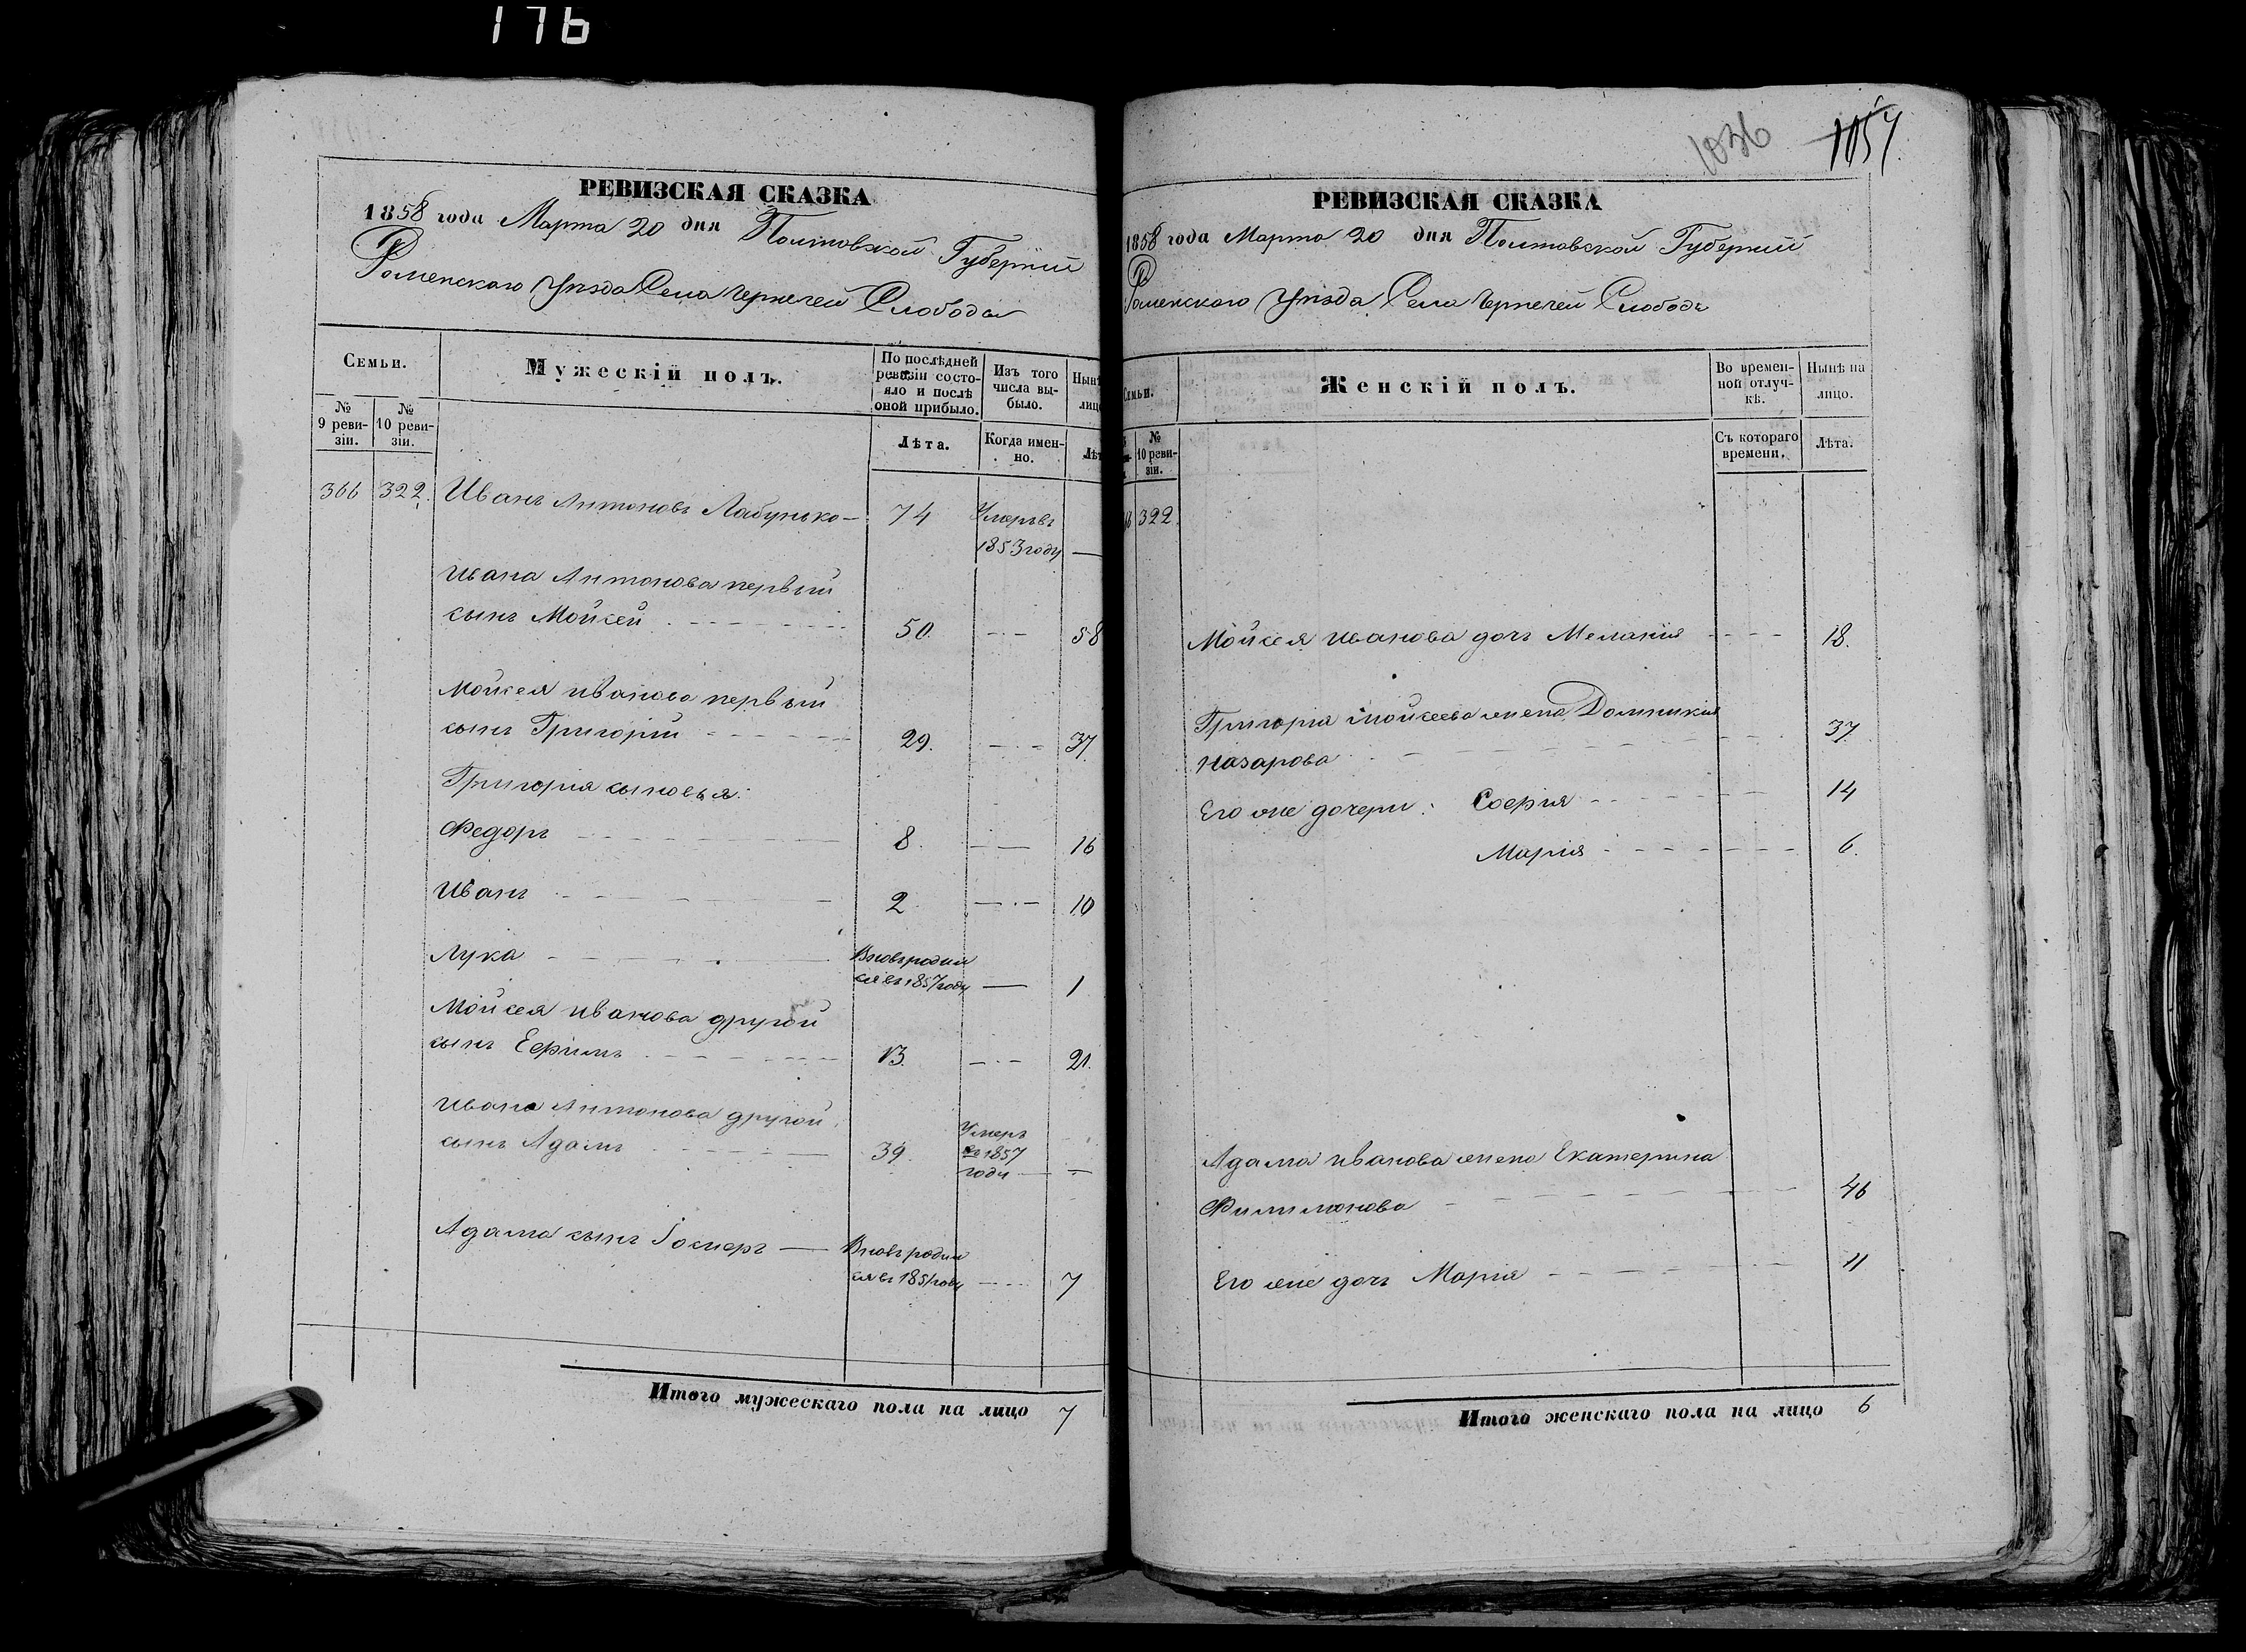 176
РЕВИЗСКАЯ СКАЗКА
1858 года Марта 20 дня Полтовской Губерніи
Роменскаго Уѣзда Села Чернечей Слободы
Семьи.
Мужескій полъ.
По послѣдней ревизіи состояло и послѣ оной прибыло.
Изъ того числа выбыло.
Нынѣ
лицо
№ 9 ревизіи.
№ 10 ревизіи.
Лѣта.
Когда именно.
Лѣт
366 322. Иванъ Антоновъ Лабунько — 74 Умеръ въ
1853 году —
Ивана Антонова первый
сынъ Мойсей 50. 58
Мойсея Иванова первый
сынъ Григорій 29. 37.
Григорія сыновья:
Федоръ 8. 16
Иванъ 2 10
Лука Вновь родил
ся въ 1857 году — 1
Мойсея Иванова другой
сынъ Ефимъ 13. 21.
Ивана Антонова другой
сынъ Адамъ 39. Умеръ
въ 1857
году —
Адама сынъ Іосифъ — Вновь родил
ся въ 1851 году 7
Итого мужескаго пола на лицо 7
1036 1057.
РЕВИЗСКАЯ СКАЗКА
1858 года Марта 20 дня Полтавской Губерніи
Роменскаго Уѣзда Села Чернечей Слободы
Семьи.
Женскій полъ.
Во временной отлучкѣ.
Нынѣ на лицо.
№ 10 ревизіи.
Съ котораго времени.
Лѣта.
322.
Мойсея Иванова дочь Меланія 18.
Григорія Мойсеева жена Домникія
Назарова 37.
Его же дочери: Софія 14
Марія 6.
Адама Иванова жена Екатерина
Филимонова 46
Его же дочь Марія 11
Итого женскаго пола на лицо 6